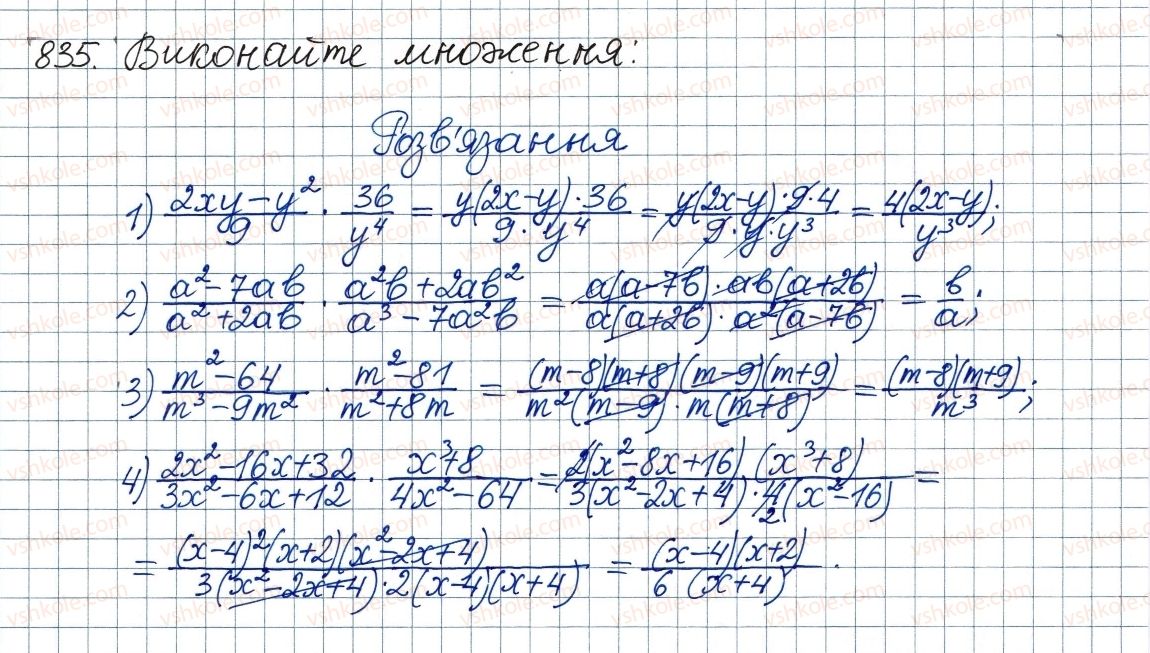 835. Виконайте множення:
Розв'язання
1) \frac{2xy-y^2}{9} \cdot \frac{36}{y^4} = \frac{y(2x-y) \cdot 36}{9 \cdot y^4} = \frac{y(2x-y) \cdot 9 \cdot 4}{9 \cdot y \cdot y^3} = \frac{4(2x-y)}{y^3};
2) \frac{a^2-7ab}{a^2+2ab} \cdot \frac{a^2b+2ab^2}{a^3-7a^2b} = \frac{a(a-7b) \cdot ab(a+2b)}{a(a+2b) \cdot a^2(a-7b)} = \frac{b}{a};
3) \frac{m^2-64}{m^3-9m^2} \cdot \frac{m^2-81}{m^2+8m} = \frac{(m-8)(m+8)(m-9)(m+9)}{m^2(m-9) \cdot m(m+8)} = \frac{(m-8)(m+9)}{m^3};
4) \frac{2x^2-16x+32}{3x^2-6x+12} \cdot \frac{x^3+8}{4x^2-64} = \frac{2(x^2-8x+16)(x^3+8)}{3(x^2-2x+4) \cdot 4_2(x^2-16)} =
= \frac{(x-4)^2(x+2)(x^2-2x+4)}{3(x^2-2x+4) \cdot 2(x-4)(x+4)} = \frac{(x-4)(x+2)}{6(x+4)}.